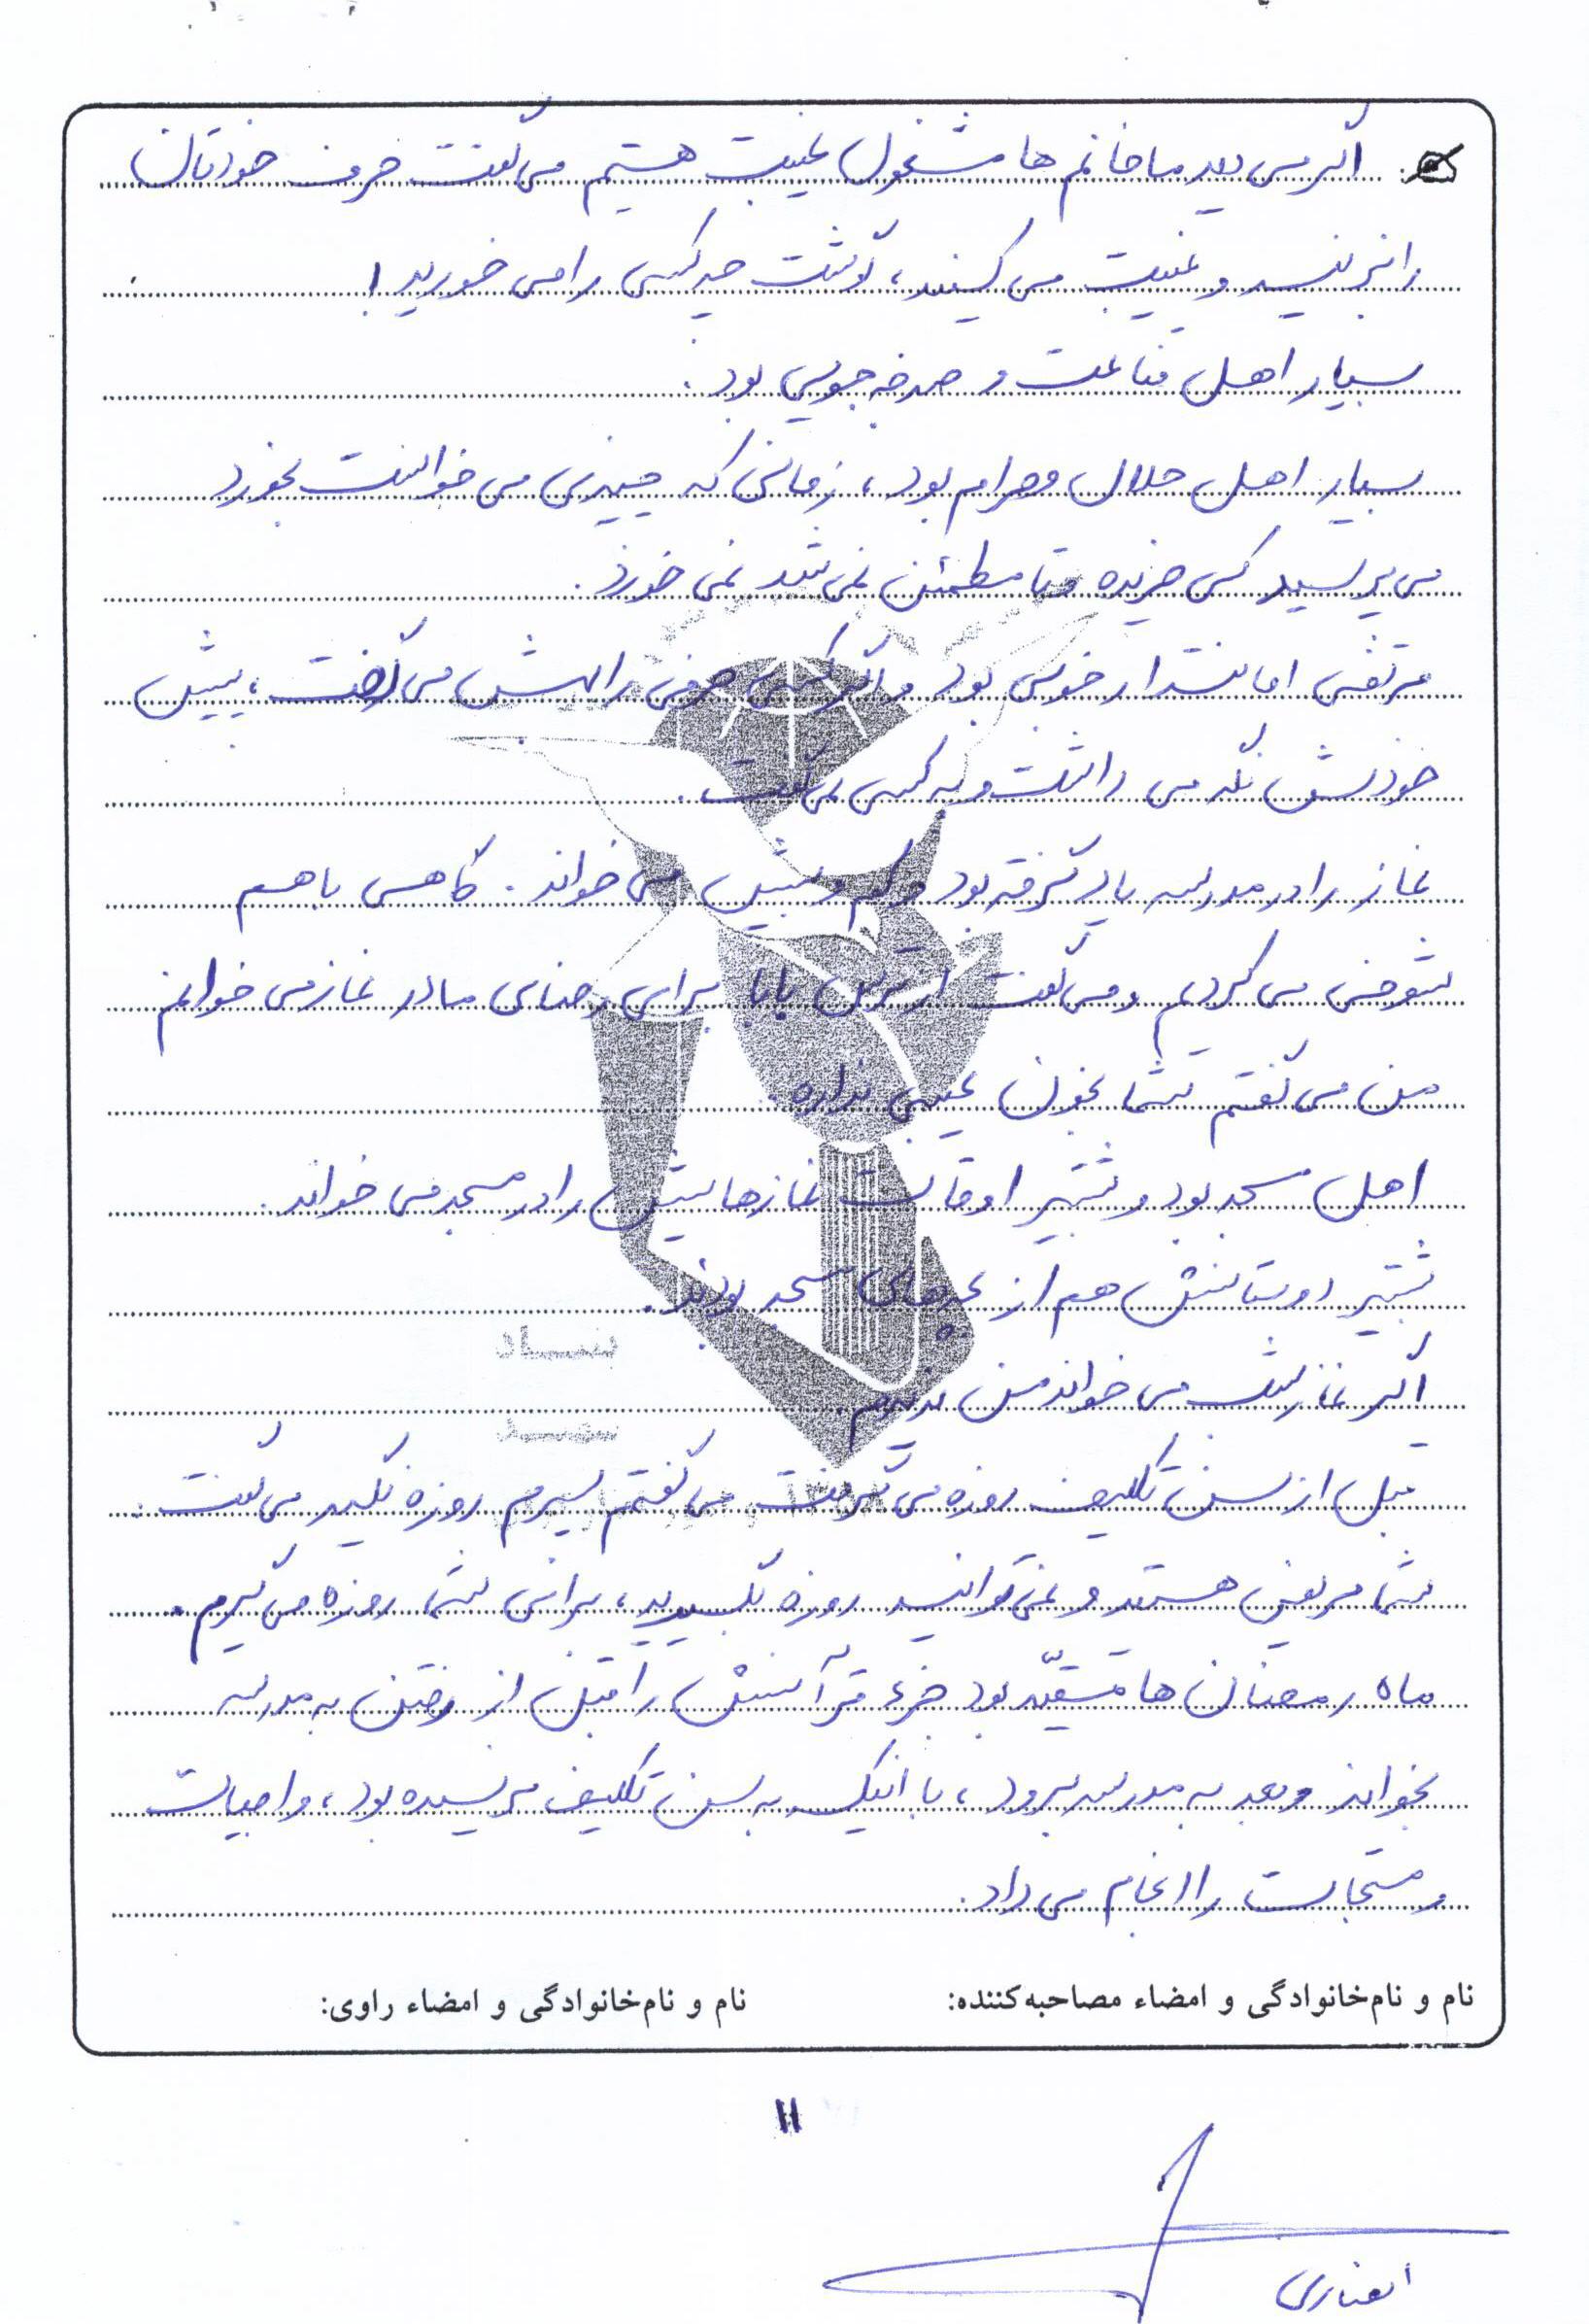 اگر می دید ما خانم ها مشغول غیبت هستیم می گفت حرف خودتان
را نزنید و غیبت می کنید، گوشت چه کسی را می خورید!
بسیار اهل قناعت و صرفه جویی بود.
بسیار اهل حلال و حرام بود، زمانی که چیزی می خواست بخورد
می پرسید کی خریده و تا مطمئن نمی شد نمی خورد.
مرتضی امانتدار خوبی بود و اگر کسی حرفی را بهش می گفت، پیش
خودش نگه می داشت و به کسی نمی گفت.
نماز را در مدرسه یاد گرفته بود و کم و بیش می خواند. گاهی با هم
شوخی می کردیم و می گفت از ترس بابا برای رضای مادر نماز می خوانم
من می گفتم شما بخون عیبی نداره.
اهل مسجد بود و بیشتر اوقات نمازهایش را در مسجد می خواند.
بیشتر دوستانش هم از بچه های مسجد بودند.
اگر نماز شب می خواند من ندیدم.
قبل از سن تکلیف روزه می گرفت می گفتم پسرم روزه نگیر می گفت:
شما مریض هستید و نمی توانید روزه بگیرید، برای شما روزه می گیرم.
ماه رمضان ها مقیّد بود جزء قرآنش را قبل از رفتن به مدرسه
بخواند و بعد به مدرسه برود، با اینکه به سن تکلیف نرسیده بود، واجبات
و مستحبات را انجام می داد.
نام و نام‌خانوادگی و امضاء مصاحبه‌کننده: نام و نام‌خانوادگی و امضاء راوی:
۱۱